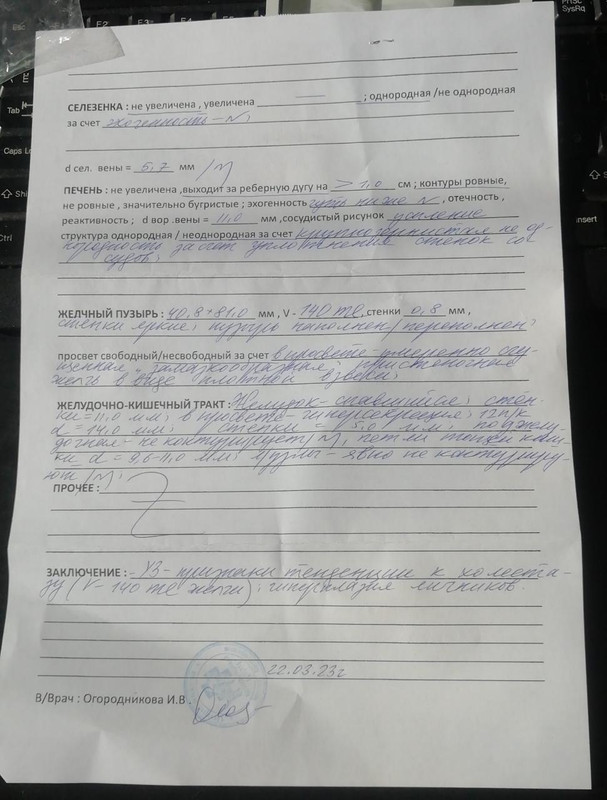 СЕЛЕЗЕНКА : не увеличена , увеличена ; однородная /не однородная
за счет эхогенность – N ;
d сел. вены = 5,7 мм /N
ПЕЧЕНЬ : не увеличена ,выходит за реберную дугу на > 1,0 см ; контуры ровные,
не ровные , значительно бугристые ; эхогенность чуть ниже N , отечность ,
реактивность ; d вор .вены = 11,0 мм ,сосудистый рисунок усиление
структура однородная / неоднородная за счет крупнозернистая не од-
нородность за счет уплотнения стенок со
судов;
ЖЕЛЧНЫЙ ПУЗЫРЬ : 40,8*81,0 мм , V - 140 ml, стенки 0,8 мм ,
стенки яркие; пузырь наполнен/переполнен
просвет свободный/несвободный за счет в просвете умеренно сгу-
щенная, замазкообразная, пристеночная
желчь в виде плотной взвеси;
ЖЕЛУДОЧНО-КИШЕЧНЫЙ ТРАКТ : Желудок – спавшийся; стен-
ки = 11,0 мм; в просвете – гиперсекреция; 12 п/к
d = 14,0 мм; стенки = 5,0 мм; поджелу-
дочная – не контурирует/N, петли тонкой киш-
ки d = 9,6-11,0 мм; – явно не контуриру-
ют /N;
ПРОЧЕЕ :
ЗАКЛЮЧЕНИЕ : – УЗ – признаки тенденции к холеста-
зу (V – 140 ml желчи); гиперплазия яичников.
22.03.23г
В/Врач : Огородникова И.В .